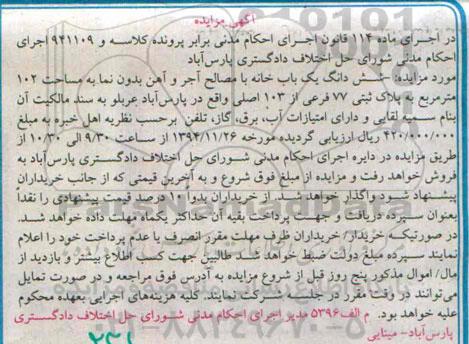 آگهی مزایده
در اجرای ماده ۱۱۴ قانون اجرای احکام مدنی برابر پرونده کلاسه و ۹۴۱۱۰۹ اجرای
احکام مدنی شورای حل اختلاف دادگستری پارس‌آباد
مورد مزایده: شش دانگ یک باب خانه با مصالح آجر و آهن بدون نما به مساحت ۱۰۲
مترمربع به پلاک ثبتی ۷۷ فرعی از ۱۰۳ اصلی واقع در پارس‌آباد عربلو به سند مالکیت آن
بنام سمیه لقایی و دارای امتیازات آب، برق، گاز، تلفن برحسب نظریه اهل خبره به مبلغ
۴۲۰/۰۰۰/۰۰۰ ریال ارزیابی گردیده مورخه ۱۳۹۴/۱۱/۲۶ از ساعت ۹/۳۰ الی ۱۰/۳۰ از
طریق مزایده در دایره اجرای احکام مدنی شورای حل اختلاف دادگستری پارس‌آباد به
فروش خواهد رفت و مزایده از مبلغ فوق شروع و به آخرین قیمتی که از جانب خریداران
پیشنهاد شود واگذار خواهد شد. از خریداران بدوا ۱۰ درصد قیمت پیشنهادی را نقداً
بعنوان سپرده دریافت و جهت پرداخت بقیه آن حداکثر یکماه مهلت داده خواهد شد.
در صورتیکه خریدار/ خریداران ظرف مهلت مقرر انصرف یا عدم پرداخت خود را اعلام
نمایند سپرده مبلغ دولت ضبط خواهد شد طالبین جهت کسب اطلاع بیشتر و بازدید از
مال/ اموال مذکور پنج روز قبل از شروع مزایده به آدرس فوق مراجعه و در صورت تمایل
می‌توانند در وقت مقرر در جلسه شرکت نمایند. کلیه هزینه‌های اجرایی بعهده محکوم
علیه خواهد بود. م الف ۵۳۹۶ مدیر اجرای احکام مدنی شورای حل اختلاف دادگستری
پارس‌آباد- مینایی